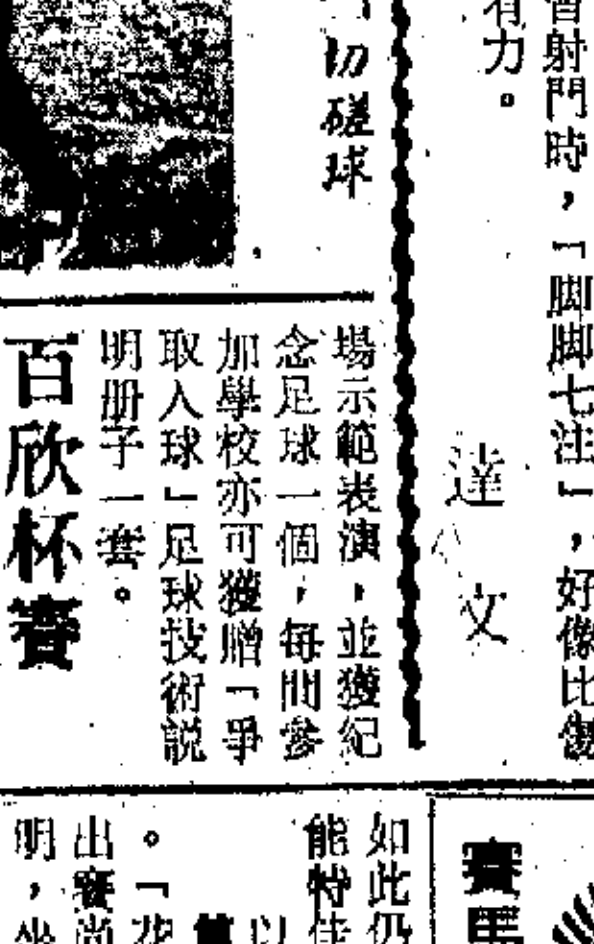 射門時，「脚脚七注」，好像比
有力。
達
文
切磋球
場示範表演，並獲紀
念足球一個，每間參
加學校亦可獲贈「爭
取入球」足球技術説
明册子一套。
百欣杯賽
賽馬
如此仍
能特佳
以
。「花
出賽尚
明，坐